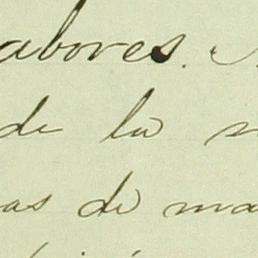 abores.
de la
as de ma